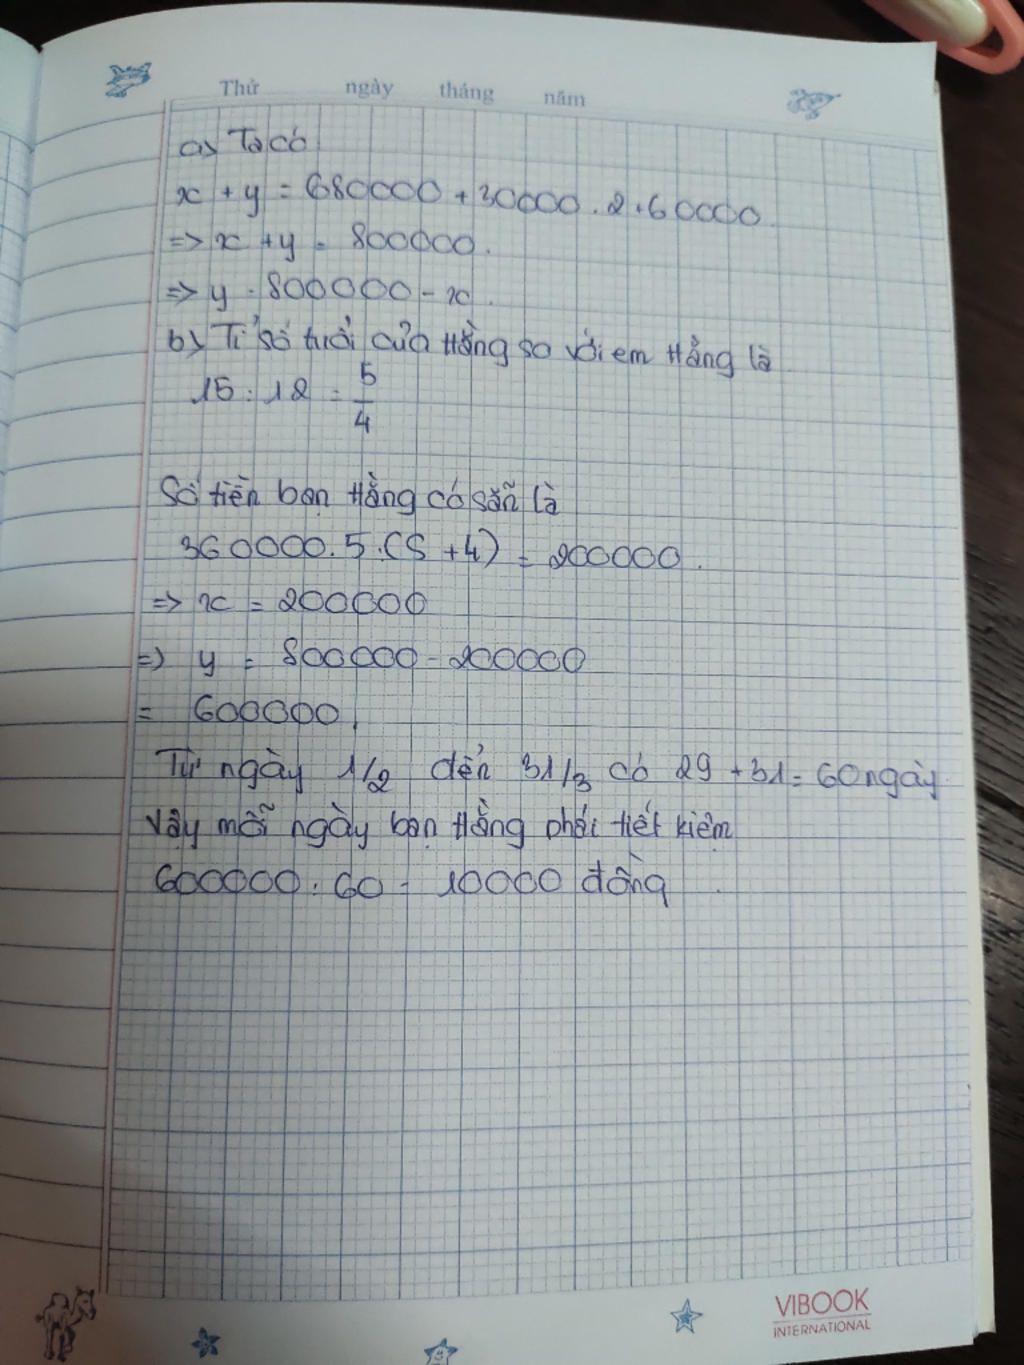 Thứ ngày tháng năm
a) Ta có
x + y = 680000 + 30000 . 2 + 60000
=> x + y = 800000.
=> y = 800000 - x.
b) Tỉ số tuổi của Hằng so với em Hằng là
15 : 12 = 5/4
Số tiền bạn Hằng có sẵn là
360000 . 5 : (5 + 4) = 200000.
=> x = 200000
=> y = 800000 - 200000
= 600000.
Từ ngày 1/2 đến 31/3 có 29 + 31 = 60 ngày
Vậy mỗi ngày bạn Hằng phải tiết kiệm
600000 : 60 = 10000 đồng
VIBOOK
INTERNATIONAL